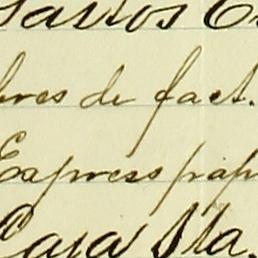 Santos C
bres de fact.
Express pap
Casa Sta.